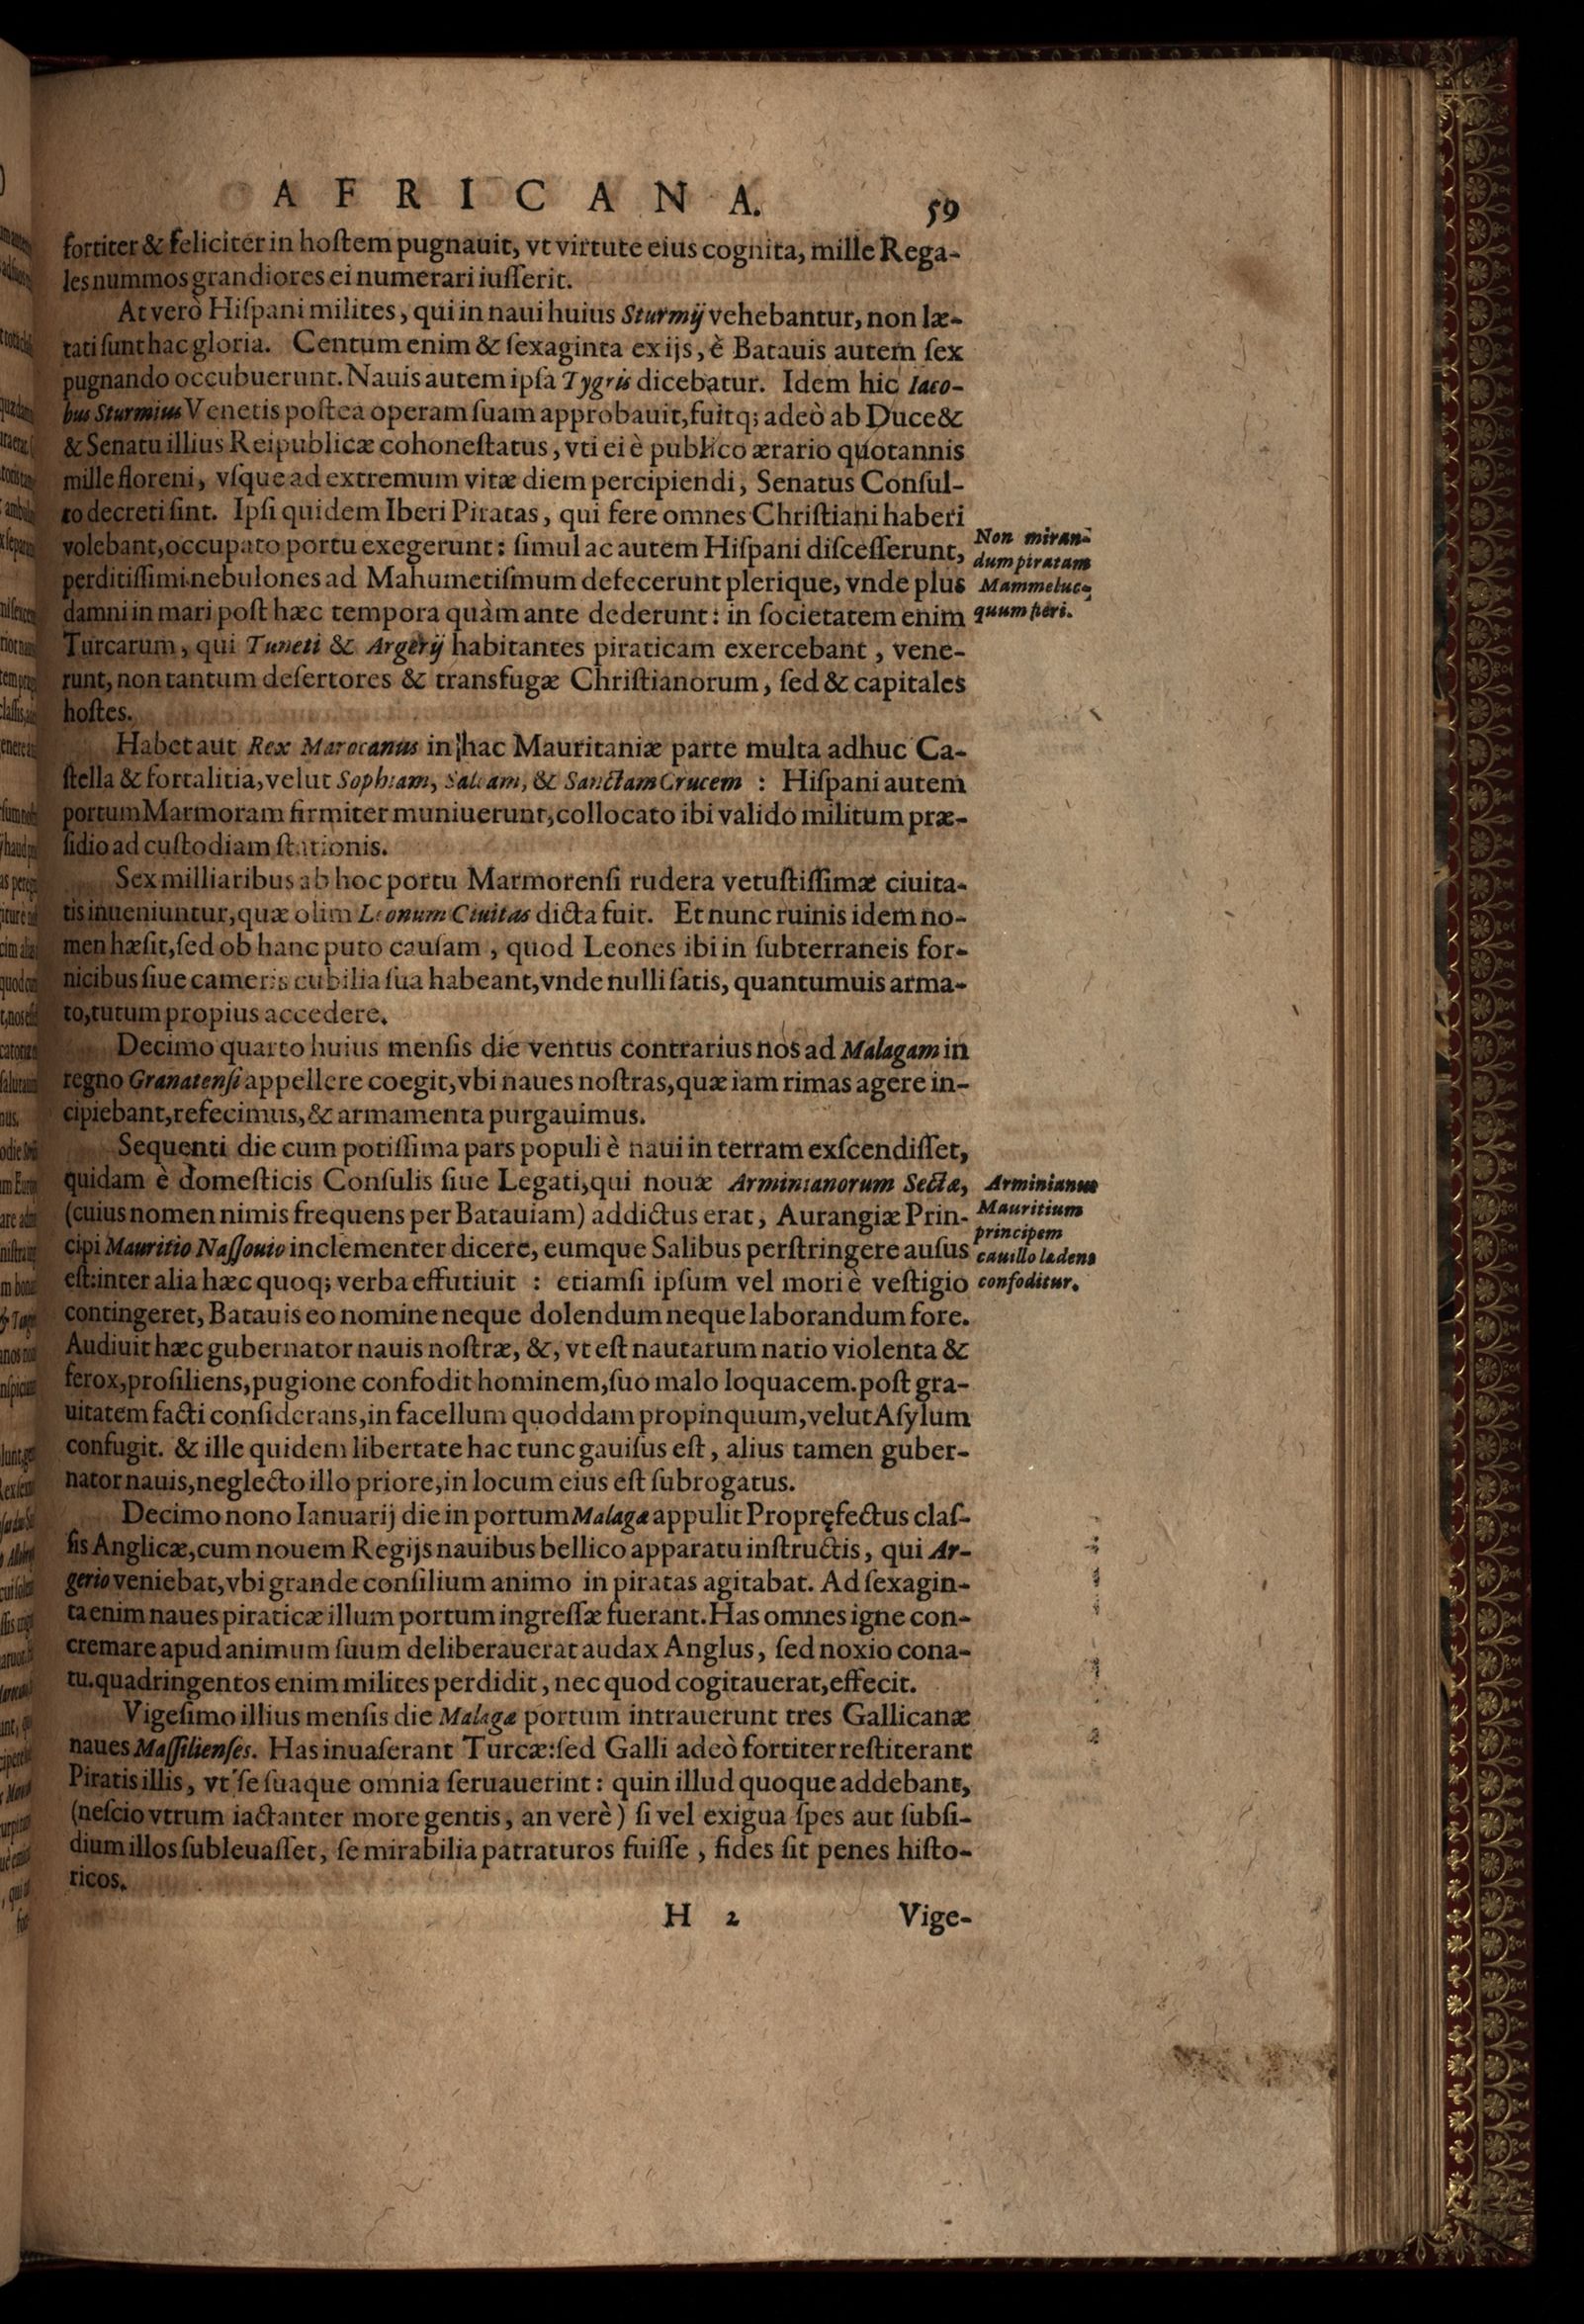 AFRICANA. 59
fortiter & feliciter in hoſtem pugnauit, vt virtute eius cognita, mille Rega-
les nummos grandiores ei numerari iuſſerit.
At verò Hiſpani milites, qui in naui huius Sturmij vehebantur, non læ-
tati ſunt hac gloria. Centum enim & ſexaginta ex ijs, è Batauis autem ſex
pugnando occubuerunt. Nauis autem ipſa Tygris dicebatur. Idem hic Iaco-
bus Sturmius Venetis poſtea operam ſuam approbauit, fuitq; adeò ab Duce &
& Senatu illius Reipublicæ cohoneſtatus, vti ei è publico ærario quotannis
mille floreni, vſque ad extremum vitæ diem percipiendi, Senatus Conſul-
to decreti ſint. Ipſi quidem Iberi Piratas, qui fere omnes Chriſtiani haberi
volebant, occupato portu exegerunt: ſimul ac autem Hiſpani diſceſſerunt,
perditiſſimi nebulones ad Mahumetiſmum defecerunt plerique, vnde plus
damni in mari poſt hæc tempora quàm ante dederunt: in ſocietatem enim
Turcarum, qui Tuneti & Argerij habitantes piraticam exercebant, vene-
runt, non tantum deſertores & transfugæ Chriſtianorum, ſed & capitales
hoſtes.
Non miran-
dum piratam
Mammeluc-
quum fieri.
Habet aut Rex Marocanus in hac Mauritaniæ parte multa adhuc Ca-
ſtella & fortalitia, velut Sophiam, Saleam, & Sanctam Crucem : Hiſpani autem
portum Marmoram firmiter muniuerunt, collocato ibi valido militum præ-
ſidio ad cuſtodiam ſtationis.
Sex milliaribus ab hoc portu Marmorenſi rudera vetuſtiſſimæ ciuita-
tis inueniuntur, quæ olim Leonum Ciuitas dicta fuit. Et nunc ruinis idem no-
men hæſit, ſed ob hanc puto cauſam, quod Leones ibi in ſubterraneis for-
nicibus ſiue cameris cubilia ſua habeant, vnde nulli ſatis, quantumuis arma-
to, tutum propius accedere.
Decimo quarto huius menſis die ventus contrarius nos ad Malagam in
regno Granatenſi appellere coegit, vbi naues noſtras, quæ iam rimas agere in-
cipiebant, refecimus, & armamenta purgauimus.
Sequenti die cum potiſſima pars populi è naui in terram exſcendiſſet,
quidam è domeſticis Conſulis ſiue Legati, qui nouæ Arminianorum Sectæ,
(cuius nomen nimis frequens per Batauiam) addictus erat, Aurangiæ Prin-
cipi Mauritio Naſſouio inclementer dicere, eumque Salibus perſtringere auſus
eſt: inter alia hæc quoq; verba effutiuit : etiamſi ipſum vel mori è veſtigio
contingeret, Batauis eo nomine neque dolendum neque laborandum fore.
Audiuit hæc gubernator nauis noſtræ, &, vt eſt nautarum natio violenta &
ferox, proſiliens, pugione confodit hominem, ſuo malo loquacem. poſt gra-
uitatem facti conſiderans, in facellum quoddam propinquum, velut Aſylum
confugit. & ille quidem libertate hac tunc gauiſus eſt, alius tamen guber-
nator nauis, neglecto illo priore, in locum eius eſt ſubrogatus.
Arminianus
Mauritium
principem
cauillo lædens
confoditur.
Decimo nono Ianuarij die in portum Malagæ appulit Propręfectus claſ-
ſis Anglicæ, cum nouem Regijs nauibus bellico apparatu inſtructis, qui Ar-
gerio veniebat, vbi grande conſilium animo in piratas agitabat. Ad ſexagin-
ta enim naues piraticæ illum portum ingreſſæ fuerant. Has omnes igne con-
cremare apud animum ſuum deliberauerat audax Anglus, ſed noxio cona-
tu. quadringentos enim milites perdidit, nec quod cogitauerat, effecit.
Vigeſimo illius menſis die Malagæ portum intrauerunt tres Gallicanæ
naues Maſſilienſes. Has inuaſerant Turcæ: ſed Galli adeò fortiter reſtiterant
Piratis illis, vt ſe ſuaque omnia ſeruauerint: quin illud quoque addebant,
(neſcio vtrum iactanter more gentis, an verè) ſi vel exigua ſpes aut ſubſi-
dium illos ſubleuaſſet, ſe mirabilia patraturos fuiſſe, fides ſit penes hiſto-
ricos.
H 2 Vige-